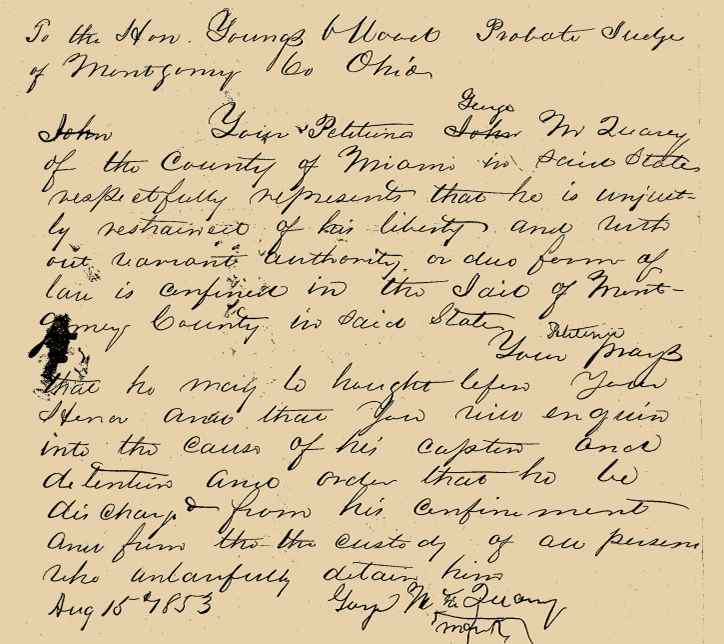 To the Hon. Youngs V Wood Probate Judge
of Montgomery Co Ohio
George
John Your Petitions John McQuarey
of the County of Miami in said State
respectfully represents that he is unjust-
ly restrained of his liberty and with
out warrant authority or due form of
law is confined in the Jail of Mont-
gomery County in said State
Petitioner
Your prays
that he may be brought before Your
Honor and that you will enquire
into the cause of his caption and
detention and order that he be
discharged from his confinement
and from the the custody of all persons
who unlawfully detain him
Aug 15th 1853 George McQuary
mark